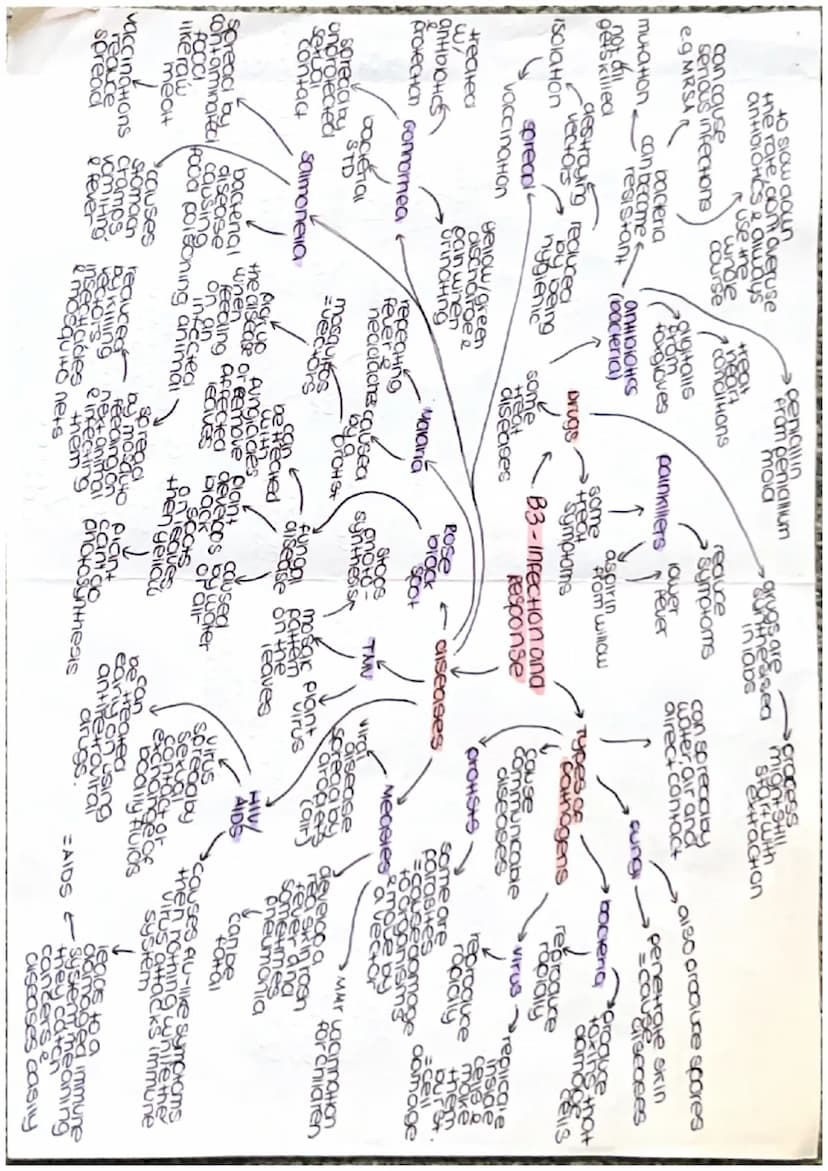 B3 - Infection and
Response
drugs
some
treat
diseases
some
treat
symptoms
painkillers
reduce
symptoms
lower
fever
aspirin
from willow
drugs are
synthesised
in labs
process
might still
start with
extraction
antibiotics
(bacteria)
penicillin
from penicillium
mold
treat
heart
conditions
digitalis
from
foxgloves
bacteria
can become
resistant
mutation
not all
get killed
can cause
serious infections
e.g MRSA
to slow down
the rate, don't overuse
antibiotics & always
use the
whole
course
spread
reduced
by being
hygienic
destroying
vectors
isolation
vaccination
Gonorrhea
treated
w/
antibiotics
&
protection
spread by
unprotected
sexual
contact
bacterial
STD
yellow/green
discharge &
pain when
urinating
Salmonella
spread by
contaminated
food
like raw
meat
vaccinations
reduce
spread
causes
stomach
cramps,
vomiting,
& fever
bacterial
disease
causing
food poisoning
Malaria
repeating
fever &
headaches
caused
by a
protist
mosquitos
= vectors
pick up
the disease
when
feeding
on an
infected
animal
spread
by mosquito
feeding on
next animal
& infecting
them
reduced
by killing
vectors -
insecticides
& mosquito nets
Rose
black
spot
fungal
disease
can
be treated
with
fungicides
or remove
affected
leaves
plant
develops
black
spots
on leaves,
then yellow
plant
can't do
photosynthesis
caused
by water
or air
diseases
TMV
stops
photo-
synthesis
mosaic
pattern
on the
leaves
plant
virus
HIV/
AIDS
virus
spread by
sexual
contact or
exchange of
bodily fluids
can
be treated
early on using
antiretroviral
drugs.
causes flu-like symptoms
then nothing, while the
virus attacks immune
system
leads to a
damaged immune
system meaning
they catch
cancers &
diseases easily
= AIDS
Measles
viral
disease
spread by
droplets
(air)
develop a
red skin rash
fever and
sometimes
pneumonia
can be
fatal
MMR vaccination
for children
Types of
pathogens
can spread by
water, air and
direct contact
cause
communicable
diseases
protists
some are
parasites
= cause damage
to organisms
& move by
a vector
fungi
also produce spores
penetrate skin
= cause
diseases
bacteria
reproduce
rapidly
produce
toxins that
damage
cells
virus
reproduce
rapidly
replicate
inside
cells &
make
them
burst.
= cell
damage